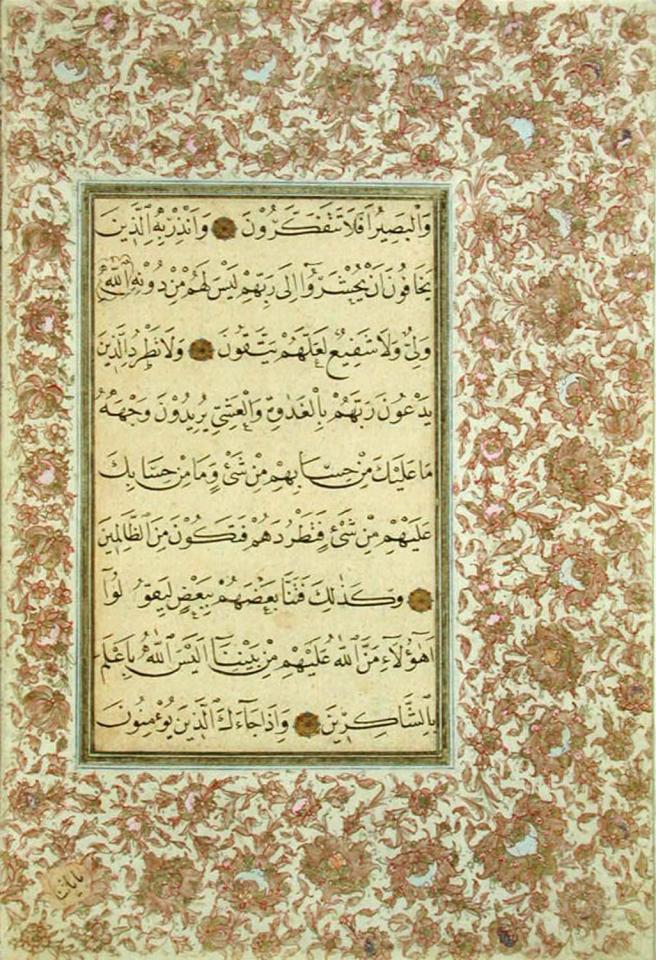 وَالْبَصِيرُ أَفَلَا تَتَفَكَّرُونَ وَأَنْذِرْ بِهِ الَّذِينَ
يَخَافُونَ أَنْ يُحْشَرُوا إِلَى رَبِّهِمْ لَيْسَ لَهُمْ مِنْ دُونِهِ
وَلِيٌّ وَلَا شَفِيعٌ لَعَلَّهُمْ يَتَّقُونَ وَلَا تَطْرُدِ الَّذِينَ
يَدْعُونَ رَبَّهُمْ بِالْغَدٰوةِ وَالْعَشِيِّ يُرِيدُونَ وَجْهَهُ
مَا عَلَيْكَ مِنْ حِسَابِهِمْ مِنْ شَيْءٍ وَمَا مِنْ حِسَابِكَ
عَلَيْهِمْ مِنْ شَيْءٍ فَتَطْرُدَهُمْ فَتَكُونَ مِنَ الظَّالِمِينَ
وَكَذٰلِكَ فَتَنَّا بَعْضَهُمْ بِبَعْضٍ لِيَقُولُوا
أَهٰؤُلَاءِ مَنَّ اللّٰهُ عَلَيْهِمْ مِنْ بَيْنِنَا أَلَيْسَ اللّٰهُ بِأَعْلَمَ
بِالشَّاكِرِينَ وَإِذَا جَاءَكَ الَّذِينَ يُؤْمِنُونَ